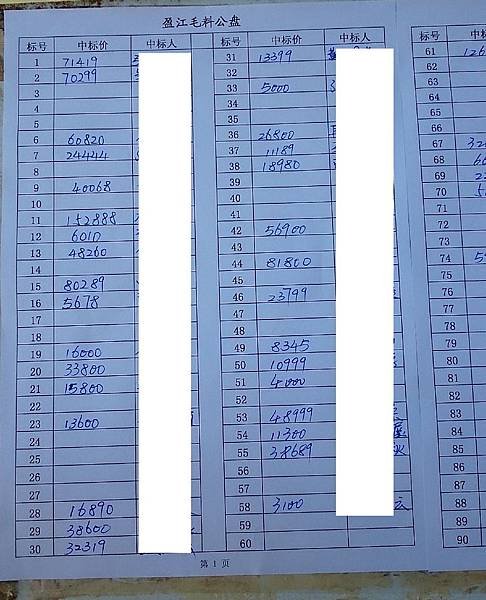 盈江毛料公盘
标号 中标价 中标人
1 71419
2 70299
3
4
5
6 60820
7 24444
8
9 40068
10
11 152888
12 6010
13 48260
14
15 80289
16 5678
17
18
19 16000
20 33800
21 15800
22
23 13600
24
25
26
27
28 16890
29 38600
30 32319
标号 中标价 中标人
31 13399
32
33 5000
34
35
36 26800
37 11189
38 18980
39
40
41
42 56900
43
44 81800
45
46 23799
47
48
49 8345
50 10999
51 4000
52
53 48999
54 11300
55 38689
56
57
58 3100
59
60
标号 中标
61 126
62
63
64
65
66
67
68
69
70
71
72
73
74
75
76
77
78
79
80
81
82
83
84
85
86
87
88
89
90
第 1 页